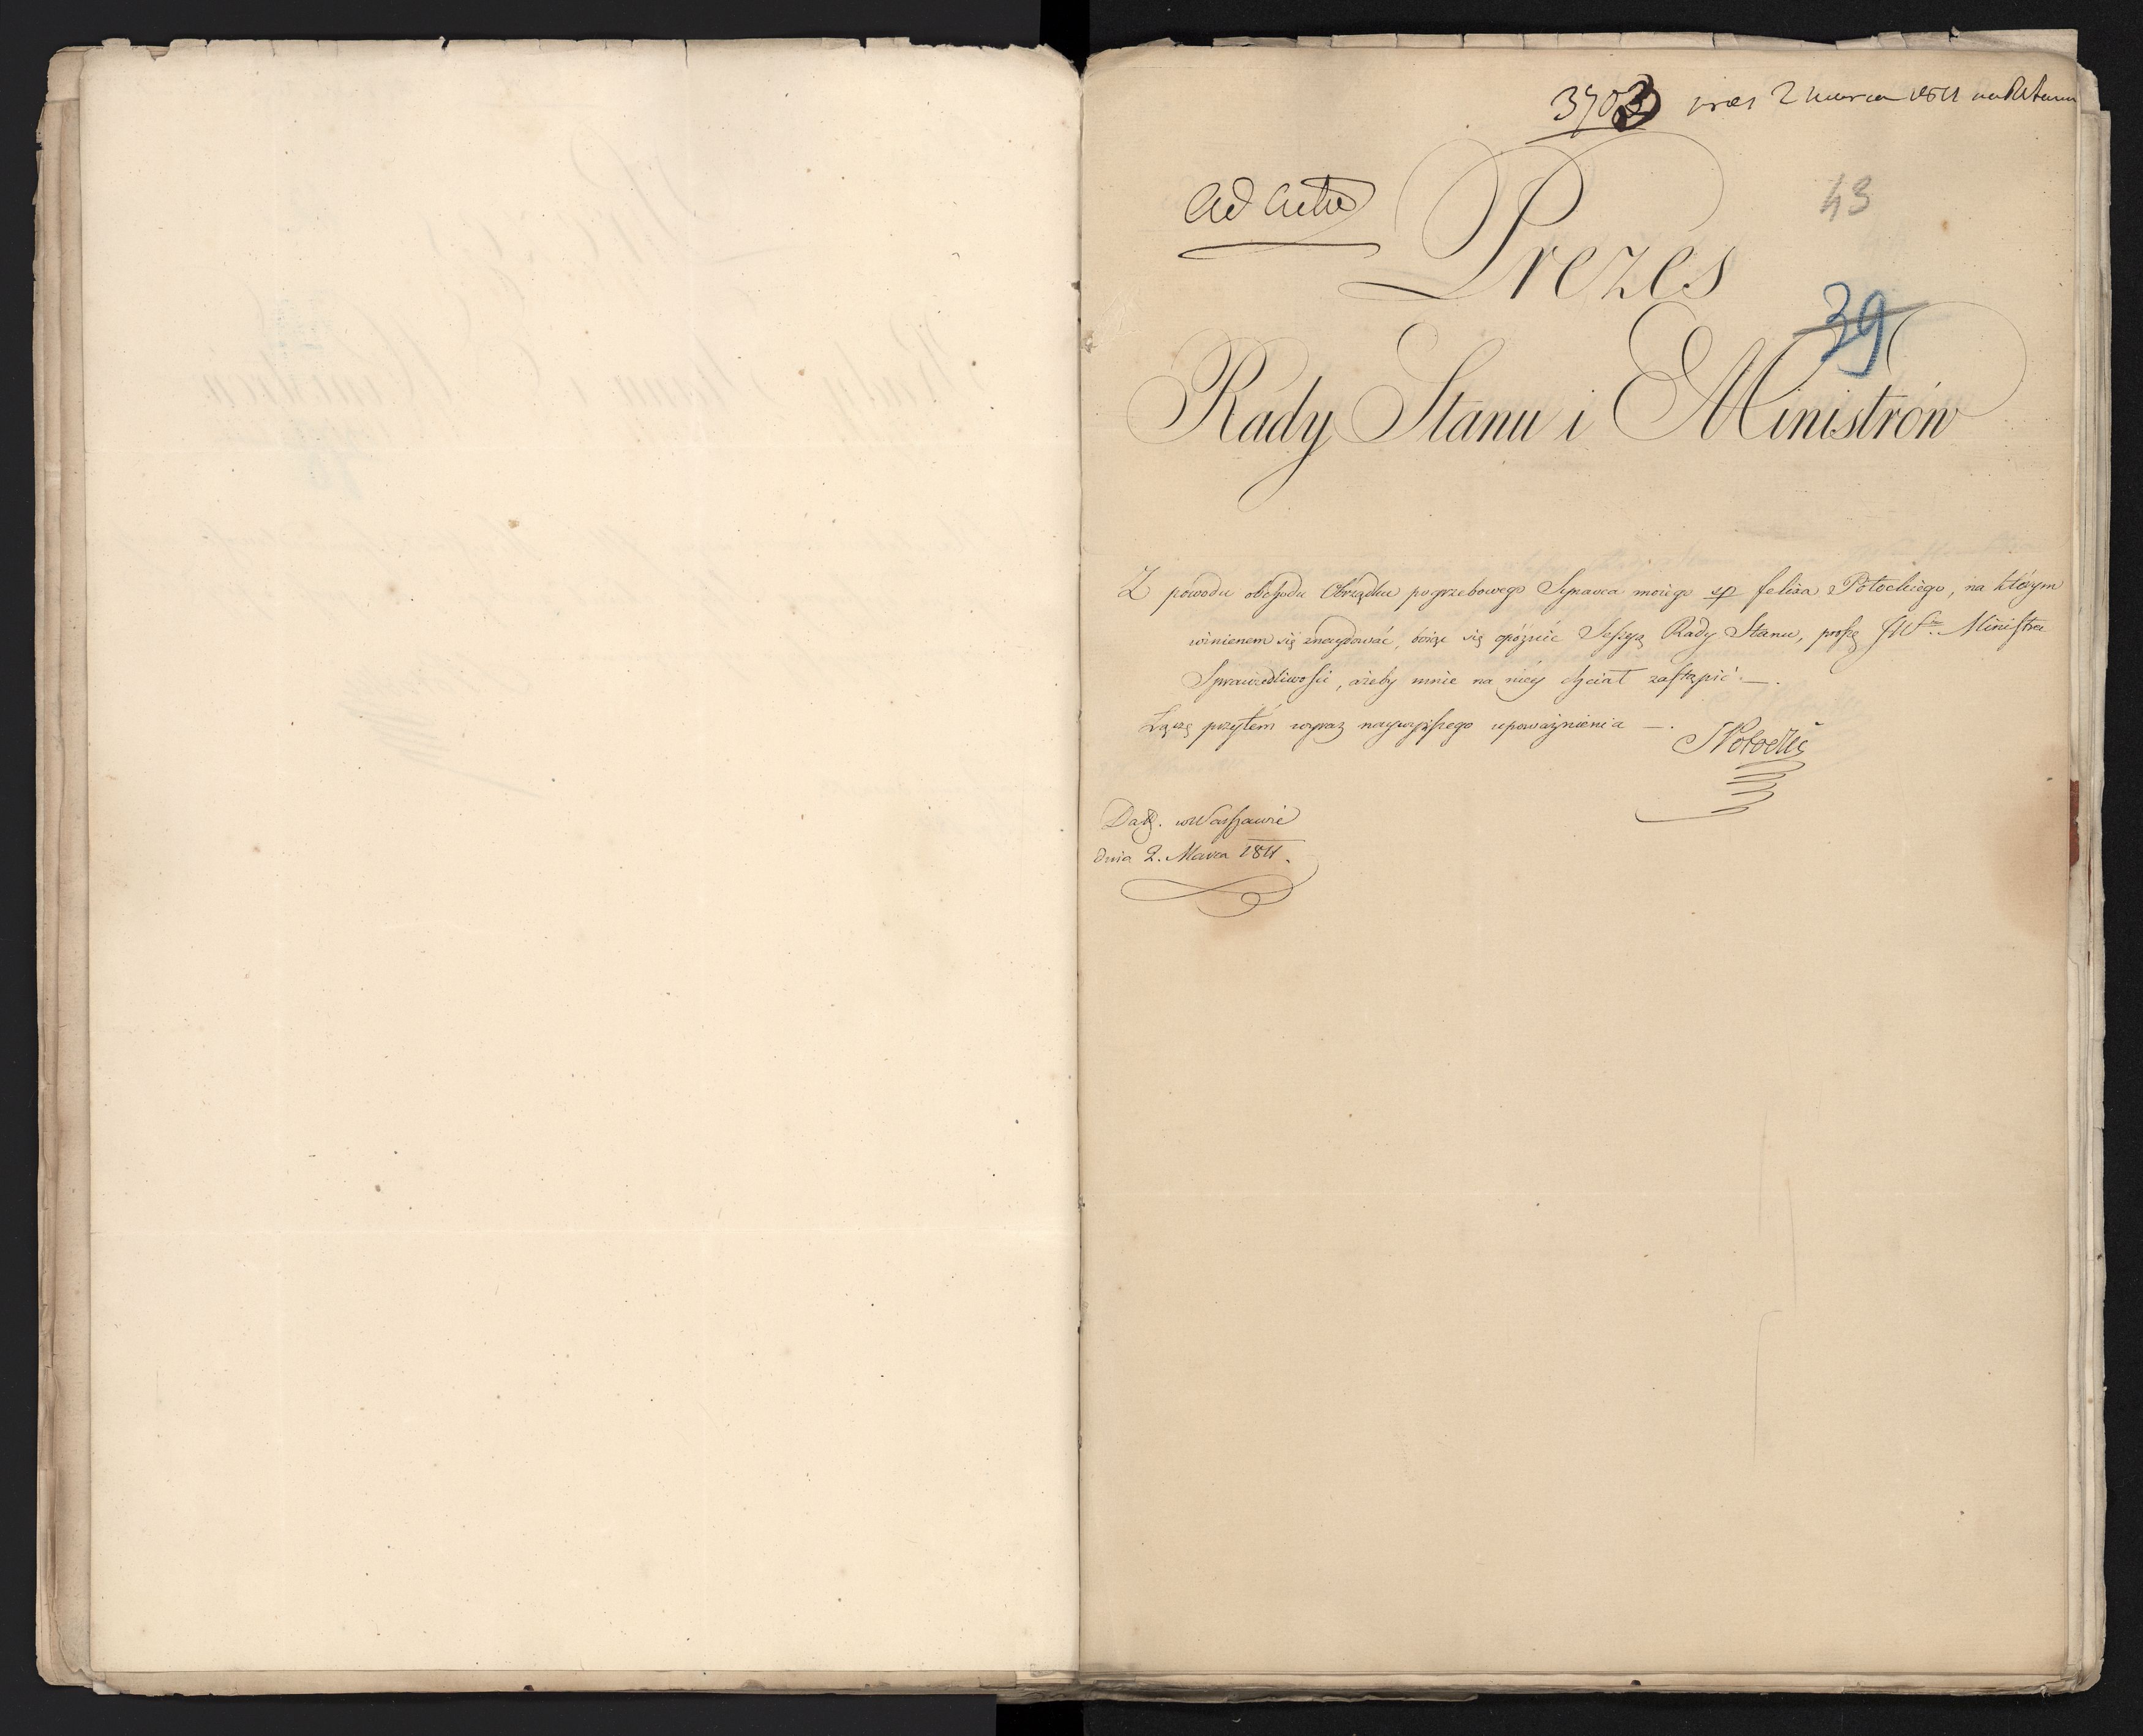 3703 pres 2 marca 1811 na R Stanu
ad acta
43
Prezes
39
Rady Stanu i Ministrów
Z powodu obchodu Obrządku pogrzebowego Synowca moiego sp felixa Potockiego, na którym
winienem się znaydować, boiąc się opóźnić Sessyą Rady Stanu, proszę JWo Ministra
Sprawiedliwości, ażeby mnie na niey chciał zastąpić. —.
Łączę przytém wyraz naywyższego upoważnienia —.
SPotocki
Dań. w Warszawie
dnia 2. Marca 1811.